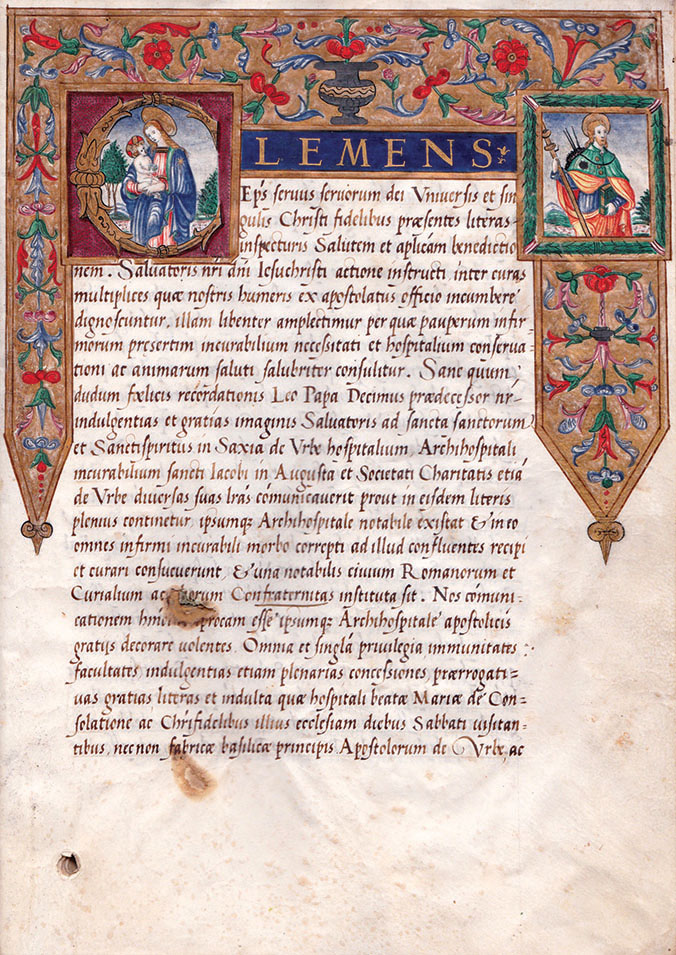 CLEMENS
Eps seruus seruorum dei Vniuersis et sin
gulis Christi fidelibus præsentes literas
inspecturis Salutem et aplicam benedictio
nem. Saluatoris nri dni Iesuchristi actione instructi inter curas
multiplices quæ nostris humeris ex apostolatus officio incumbere
dignoscuntur, illam libenter amplectimur per quæ pauperum infir
morum presertim incurabilium necessitati et hospitalium conserua
tioni ac animarum saluti salubriter consulitur. Sane quum
dudum fœlicis recordationis Leo Papa Decimus prædecessor nr
indulgentias et gratias imaginis Saluatoris ad sancta sanctorum
et Sanctispiritus in Saxia de Vrbe hospitalium, Archihospitali
incurabilium sancti Iacobi in Augusta et Societati Charitatis etiã
de Vrbe diuersas suas lras comunicauerit prout in eisdem literis
plenius continetur, ipsumq; Archihospitale notabile existat & in eo
omnes infirmi incurabili morbo correpti ad illud confluentes recipi
et curari consueuerunt, & una notabilis ciuium Romanorum et
Curialium ac Confraternitas instituta sit. Nos comuni-
cationem esse ipsumq; Archihospitale apostolicis
gratijs decorare uolentes, Omnia et singlã priuilegia immunitates
facultates, indulgentias etiam plenarias concessiones, prærrogati=
uas gratias literas et indulta quæ hospitali beatæ Mariæ de Con=
solatione ac Chrifidelibus illius ecclesiam diebus Sabbati uisitan=
tibus, nec non fabricæ basilicæ principis Apostolorum de Vrbe, ac